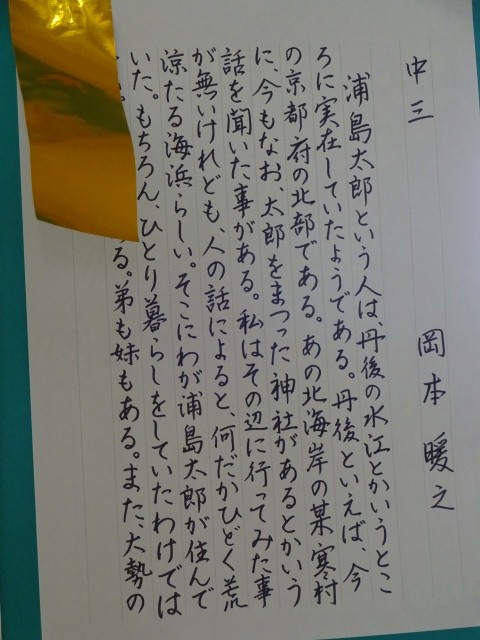 中三　岡本暖之
浦島太郎という人は、丹後の水江とかいうとこ
ろに実在していたようである。丹後といえば、今
の京都府の北部である。あの北海岸の某寒村
に、今もなお、太郎をまつった神社があるとかいう
話を聞いた事がある。私はその辺に行ってみた事
が無いけれども、人の話によると、何だかひどく荒
涼たる海浜らしい。そこにわが浦島太郎が住んで
いた。もちろん、ひとり暮らしをしていたわけでは
る。弟も妹もある。また、大勢の